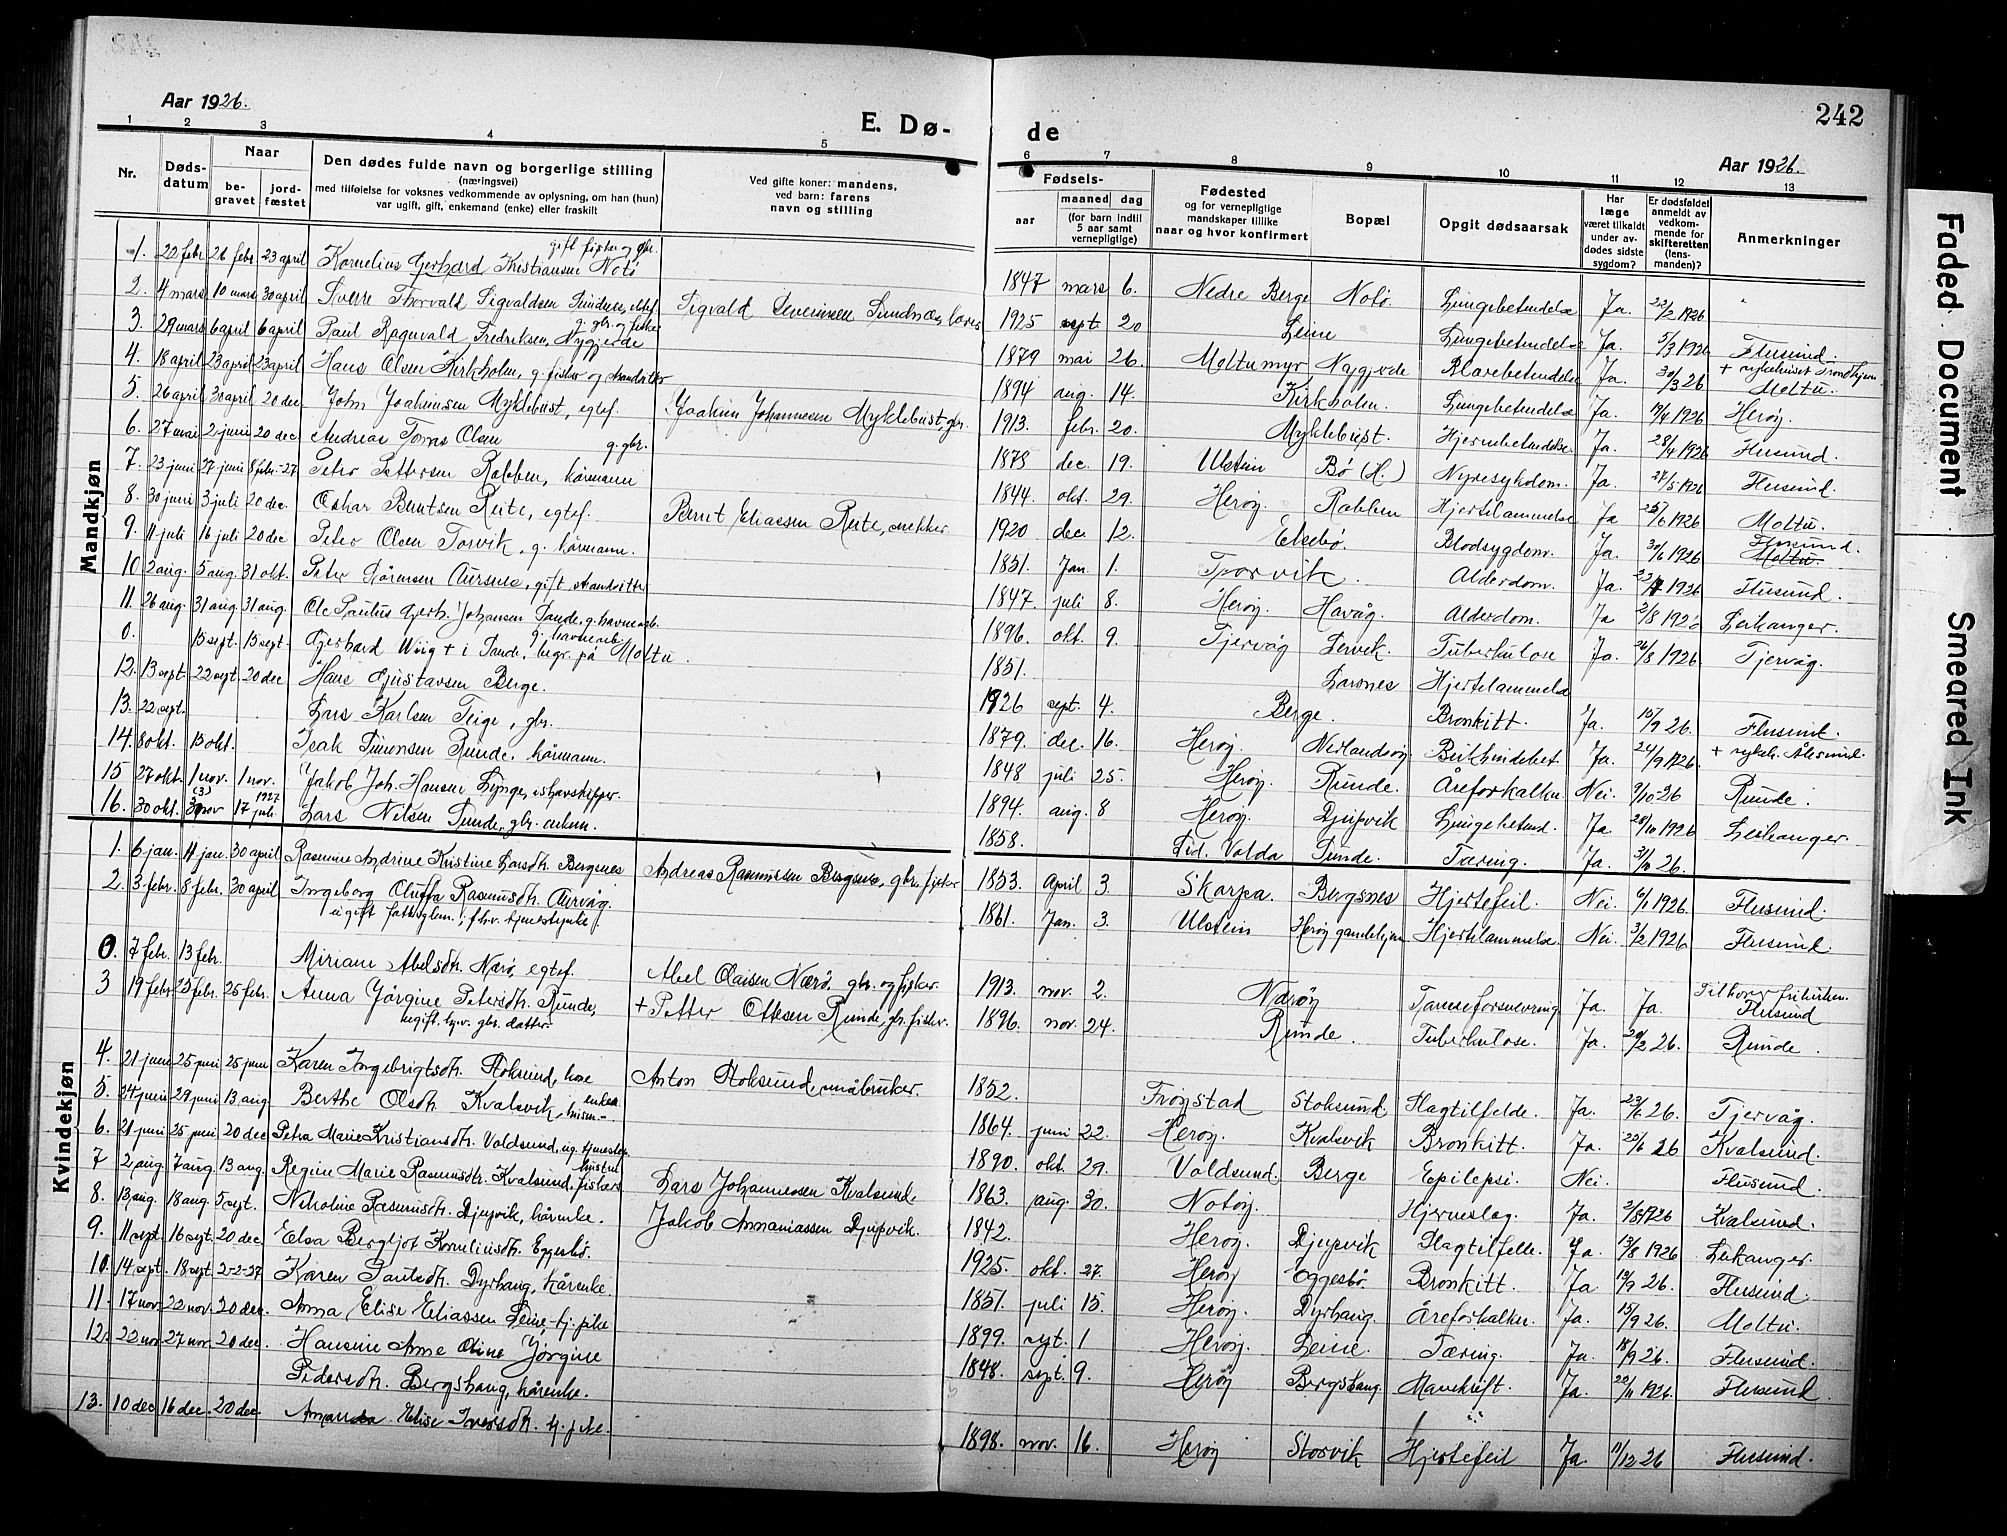 242
Aar 1926.
E. Dø-
de
Aar 1926.
1 2 3 4 5 6 7 8 9 10 11 12 13
Nr.
Døds-
datum
Naar
be-
gravet
jord-
fæstet
Den dødes fulde navn og borgerlige stilling
(næringsvei)
med tilføielse for voksnes vedkommende av oplysning, om han (hun)
var ugift, gift, enkemand (enke) eller fraskilt
Ved gifte koner: mandens,
ved barn: farens
navn og stilling
Fødsels-
aar
maaned
dag
(for barn indtil
5 aar samt
vernepligtige)
Fødested
og for vernepligtige
mandskaper tillike
naar og hvor konfirmert
Bopæl
Opgit dødsaarsak
Har
læge
været tilkaldt
under av-
dødes sidste
sygdom?
Er dødsfaldet
anmeldt av
vedkom-
mende for
skifteretten
(lens-
manden)?
Anmerkninger
Mandkjøn
1. 22 febr. 26 febr 23 april Kornelius Gerhard Kristiansen Notø gift fisker og gbr. 1847 mars 6. Nedre Berge Notø. Lungebetendelse Ja. 22/2 1926
2. 4 mars 10 mars 30 april Sverre Thorvald Sigvaldsen Sundnes, ektef. Sigvald Severinsen Sundnes, 1925 sept. 20 Leine Lungebetendelse Ja. 5/3 1926 Flusund.
3. 29 mars 6 april 6 april Paul Ragnvald Fredriksen Nygjerde g. gbr. og fisker 1879 mai 26. Moltumyr Nygjerde Blærebetendelse Ja. 30/3 26 + sykehuset Trondhjem Moltu.
4. 18 april 23 april 23 april Hans Olsen Kirkholm, g. fisker og strandsitter 1894 aug. 14. Kirkholm. Lungebetendelse Ja. 19/4 1926 Herøy.
5. 26 april 30 april 20 dec John Joakimsen Myklebust, egtef. Joakim Johannessen Myklebust, gbr. 1913. febr. 20. Myklebust. Hjernebetendelse. Ja. 28/4 1926 Flusund.
6. 27 mai 2 juni 20 dec. Andreas Toms Olsen g. gbr. 1878 dec. 19. Ulstein Bø (H.) Nyresykdom. Ja. 27/5 1926 Flusund.
7. 23 juni 27 juni 8 febr.-27 Peter Pettersen Rabben, kårmann 1844. okt. 29. Herøy. Rabben Hjertelammelse Ja 25/6 1926 Moltu.
8. 30 juni 3 juli 20 dec. Oskar Berntsen Reite, egtef. Bernt Eliassen Reite, snekker. 1920 dec. 12. Eksebø. Blodsygdom. Ja. 30/6 1926 Flusund. Moltu.
9. 11 juli 16 juli 20 dec Peter Olsen Torvik, g. kårmann. 1851. Jan. 1. Torvik. Alderdom. Ja. 1926 Flusund.
10. 2 aug. 5 aug. 31 okt. Peter Sørensen Aursnes, gift strandsitter 1847 juli 8. Herøy. Havåg. Alderdom. Ja 2/8 1926 Leikanger.
11. 26 aug. 31 aug. 31 aug. Ole Paulus Gerh. Johansen Sande, g. havnearb. 1896. okt. 9. Tjervåg Lervik. Tuberkulose Ja. 26/8 1926 Tjervåg.
0. 15 sept. 15 sept. Gerhard Wiig + i Sande, begr. på Moltu. g. havnearb. 1851. Larsnes Hjertelammelse
12. 13 sept. 22 sept. 20 dec Hans Gustavsen Berge. 1926 sept. 4. Berge. Bronkitt. Ja. 15/9 26. Flusund.
13. 22 sept. Lars Karlsen Teige, gbr. 1879. dec. 16. Herøy. Nerlandsøy Bukhindebet. Ja. 24/9 1926. + sykeh. Ålesund.
14. 8 okt. 15 okt. Isak Simonsen Runde, kårmann. 1848 juli 25. Herøy. Runde. Åreforkalkn. Nei. 9/10-26 Runde.
15 27 okt. 1 nov. 1 nov. Jakob Joh. Hansen Lynge, ishavskipper. 1894. aug. 8 Herøy. Djupvik Lungebetend. Ja. 28/10 1926 Leikanger.
16. 30 okt. (3) nov 1927 17 juli Lars Nilsen Sunde, gbr. enkem. 1858. Lid. Volda Sunde. Tæring. Ja. 26.
Kvindekjøn
1. 6 jan. 11 jan. 30 april Rasmine Andrine Kristine Larsdtr. Bergsnes Andreas Rasmussen Bergsnes, gbr. fisker 1853. April 3. Skarpa. Bergsnes Hjertefeil. Nei. 6/1 1926. Flusund.
2. 3 febr. 8 febr. 30 april Ingeborg Oluffa Rasmusdtr. Aurvåg. ugift fattiglem, fhv. tjenestepike 1861. Jan. 3. Ulstein Herøy gamlehjem Hjertelammelse. Nei. 3/2 1926 Flusund.
0. 7 febr. 13 febr. Miriam Abelsdtr. Nærø, egtef. Abel Olaisen Nærø, gbr. og fisker. 1913. nov. 2. Nærøy Ja. Ja. Tilhører frikirken. Flusund
3 19 febr. 25 febr. 25 febr. Anna Jørgine Petersdtr. Runde, ugift, hjv. gbr. datter. + Petter Ottesen Runde, gbr. fisker. 1896. nov. 24. Runde. Tuberkulose. Ja. 20/2 26. Runde.
4. 21 juni 25 juni 25 juni Karen Ingebrigtsdtr. Stoksund, kone Anton Stoksund, småbruker. 1852. Frøystad Stoksund Slagtilfelde. Ja. 23/6 26. Tjervåg.
5. 24 juni 29 juni 13 aug. Berthe Olsdtr. Kvalsvik, enkem. 1864. juni 22. Herøy. Kvalsvik Bronkitt. Ja. 25/6 26 Kvalsund.
6. 21 juni 25 juni 20 dec Petra Marie Kristiansdtr. Voldsund, ug. tjenestep. 1890. okt. 29. Voldsund. Berge Epilepsi. Nei. Flusund.
7 2 aug. 7 aug. 13 aug. Regine Marie Rasmusdtr. Kvalsund, fiskers hustru Lars Johannessen Kvalsund. 1863. aug. 30. Notøy. Hjerneslag. Ja. 3/8 1926 Kvalsund.
8. 13 aug. 18 aug. 5 sept. Nikoline Rasmusdtr. Djupvik, kårenke. Jakob Annaniassen Djupvik. 1842. Herøy. Djupvik Slagtilfelle. Ja. 13/8 1926. Leikanger.
9. 11 sept 16 sept. 20 dec. Elsa Bergljot Korneliusdtr. Eggesbø. 1925. okt. 27. Herøy Eggesbø. Bronkitt. Ja 12/9 26. Flusund.
10. 14 sept. 18 sept 2-2-27 Karen Paulsdtr. Dyrhaug, kårenke. 1851. juli 15. Herøy. Dyrhaug. Åreforkalkn. Ja. 15/9 26. Moltu.
11. 17 nov. 22 nov. 20 dec. Anna Elise Eliassen Leine, tj. pike 1899. sept. 1 Herøy. Leine Tæring. Ja. 18/9 26. Flusund.
12. 22 nov 27 nov. 20 dec. Hansine Anne Oline Jørgine Pedersdtr. Bergshaug, kårenke. 1848 sept. 9. Herøy Bergshaug. Mavekræft. Ja. 22/11 1926. Flusund.
13. 10 dec 16 dec. 20 dec. Amanda Elise Iversdtr. tj. pike. 1898. nov. 16. Herøy Storvik Hjertefeil Ja. 11/12 26 Flusund.
Faded Document
Smeared Ink